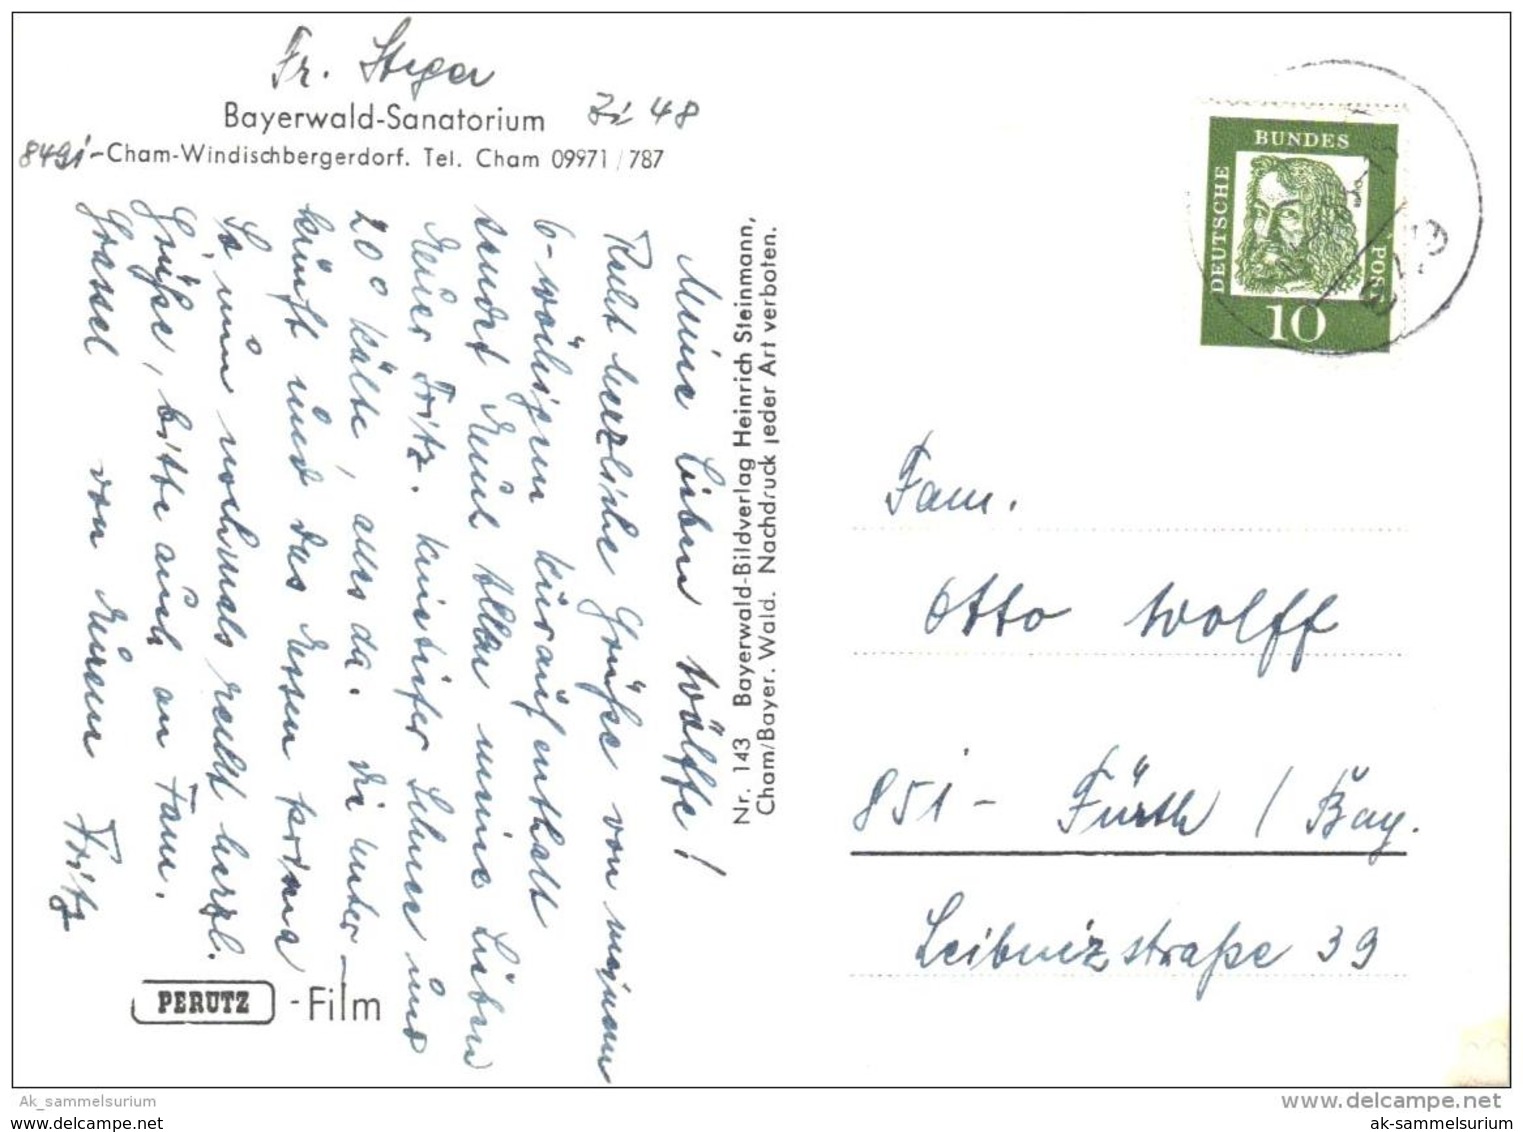 Fr. Steger
Bayerwald-Sanatorium Zi 48
8491-Cham-Windischbergerdorf. Tel. Cham 09971/787
Meine lieben Wölffe!
Recht herzliche Grüße von meinem
6-wöchigen Kuraufenthalt
sendet Euch allen meine Lieben
Euer Fritz. Knietiefer Schnee und
20° Kälte, alles da. Die Unter-
kunft und das Essen prima
So, nun nochmals recht herzl.
Grüße, bitte auch an Fam.
Grassel von Eurem Fritz
Nr. 143 Bayerwald-Bildverlag Heinrich Steinmann,
Cham/Bayer. Wald. Nachdruck jeder Art verboten.
PERUTZ -Film
DEUTSCHE BUNDES POST
10
Fam.
Otto Wolff
851- Fürth / Bay.
Leibnizstraße 39
Ak_sammelsurium
www.delcampe.net
ak-sammelsurium
www.delcampe.net
ak-sammelsurium